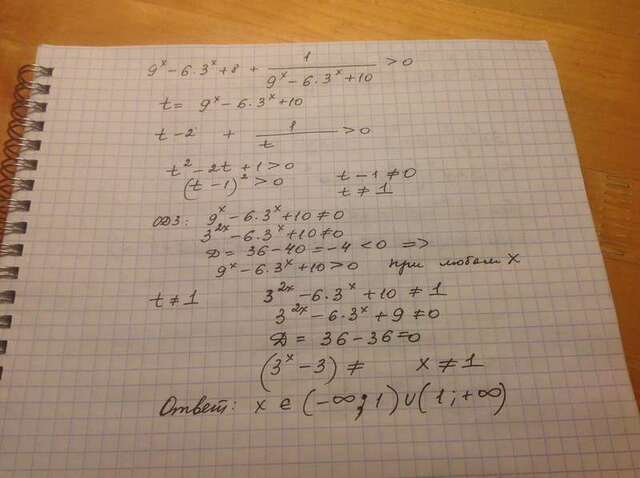 9^x - 6·3^x + 8 + 1/(9^x - 6·3^x + 10) > 0
t = 9^x - 6·3^x + 10
t - 2 + 1/t > 0
t² - 2t + 1 > 0
(t - 1)² > 0 t - 1 ≠ 0
t ≠ 1
ОДЗ: 9^x - 6·3^x + 10 ≠ 0
3^2x - 6·3^x + 10 ≠ 0
D = 36 - 40 = -4 < 0 =>
9^x - 6·3^x + 10 > 0 при любом x
t ≠ 1 3^2x - 6·3^x + 10 ≠ 1
3^2x - 6·3^x + 9 ≠ 0
D = 36 - 36 = 0
(3^x - 3) ≠ x ≠ 1
Ответ: x ∈ (-∞; 1) ∪ (1; +∞)